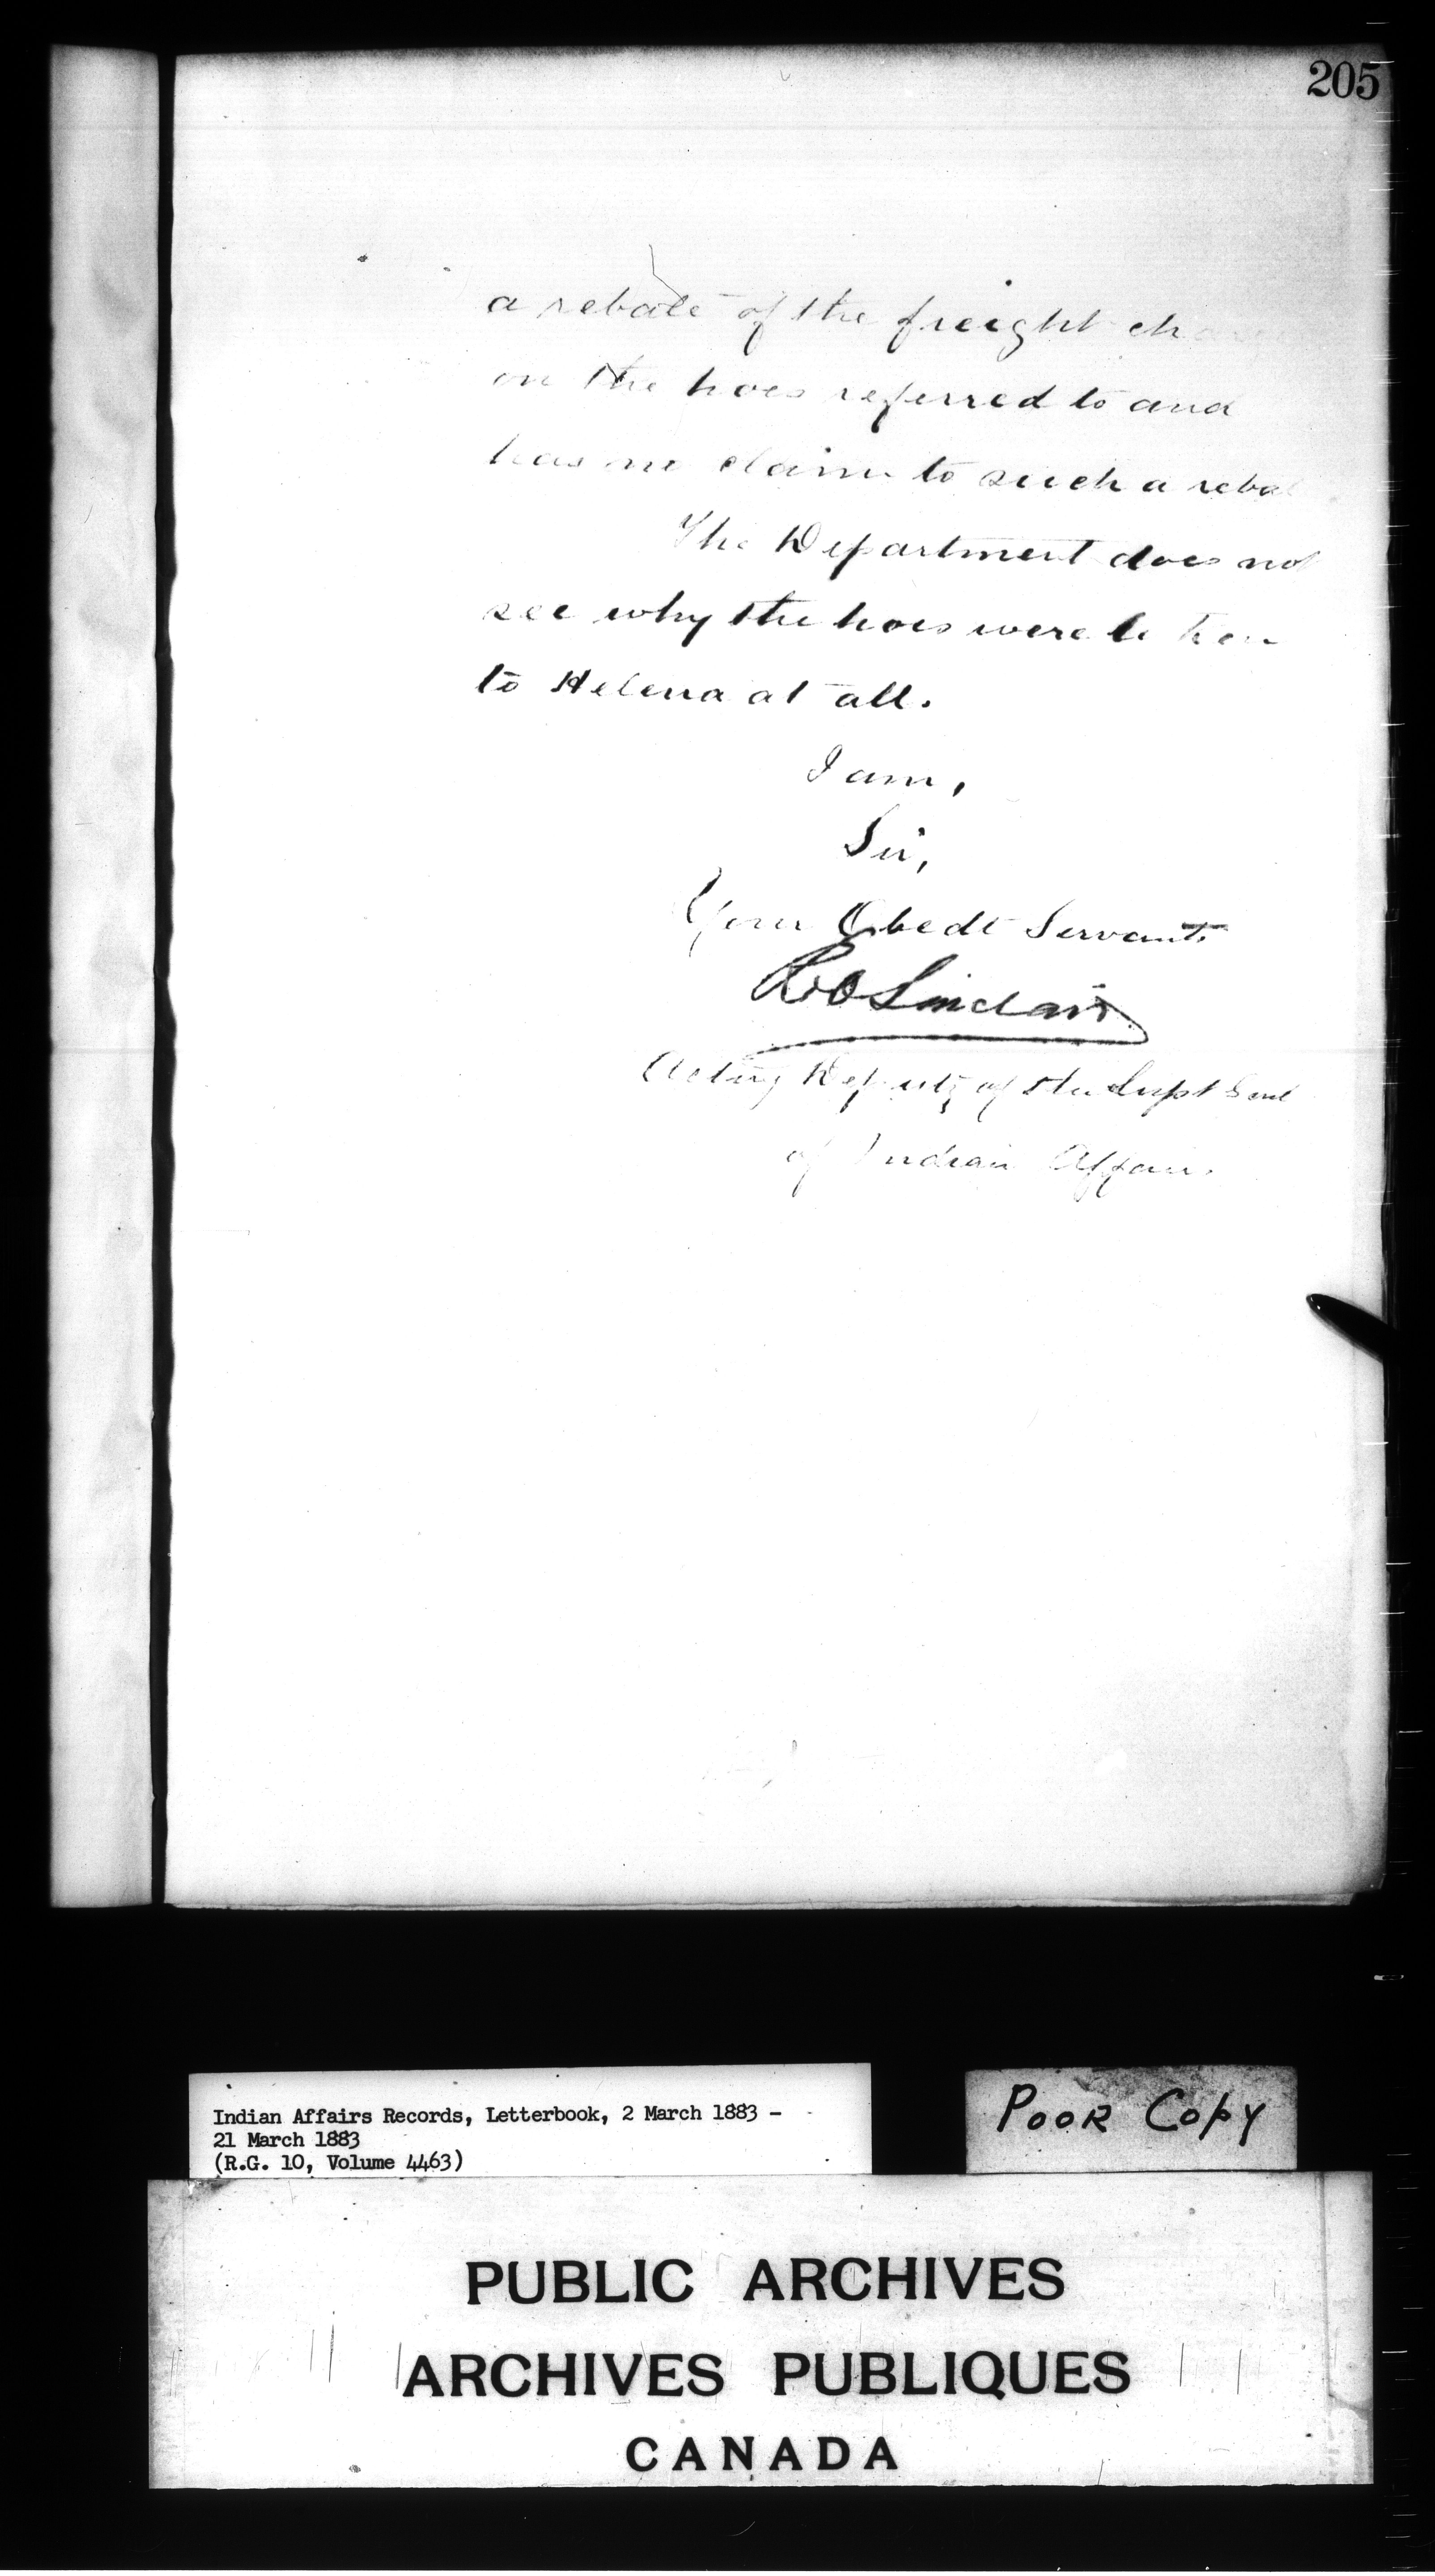 205
a rebate of the freight charge
on the hoes referred to and
has no claim to such a rebat
The Department does not
see why the hoes were taken
to Helena at all.
I am,
Sir,
Your Obedt Servant.
Sinclair
Acting Deputy of the Supt Genl
of Indian Affairs
Indian Affairs Records, Letterbook, 2 March 1883 -
21 March 1883
(R.G. 10, Volume 4463)
POOR COPY
PUBLIC ARCHIVES
ARCHIVES PUBLIQUES
CANADA